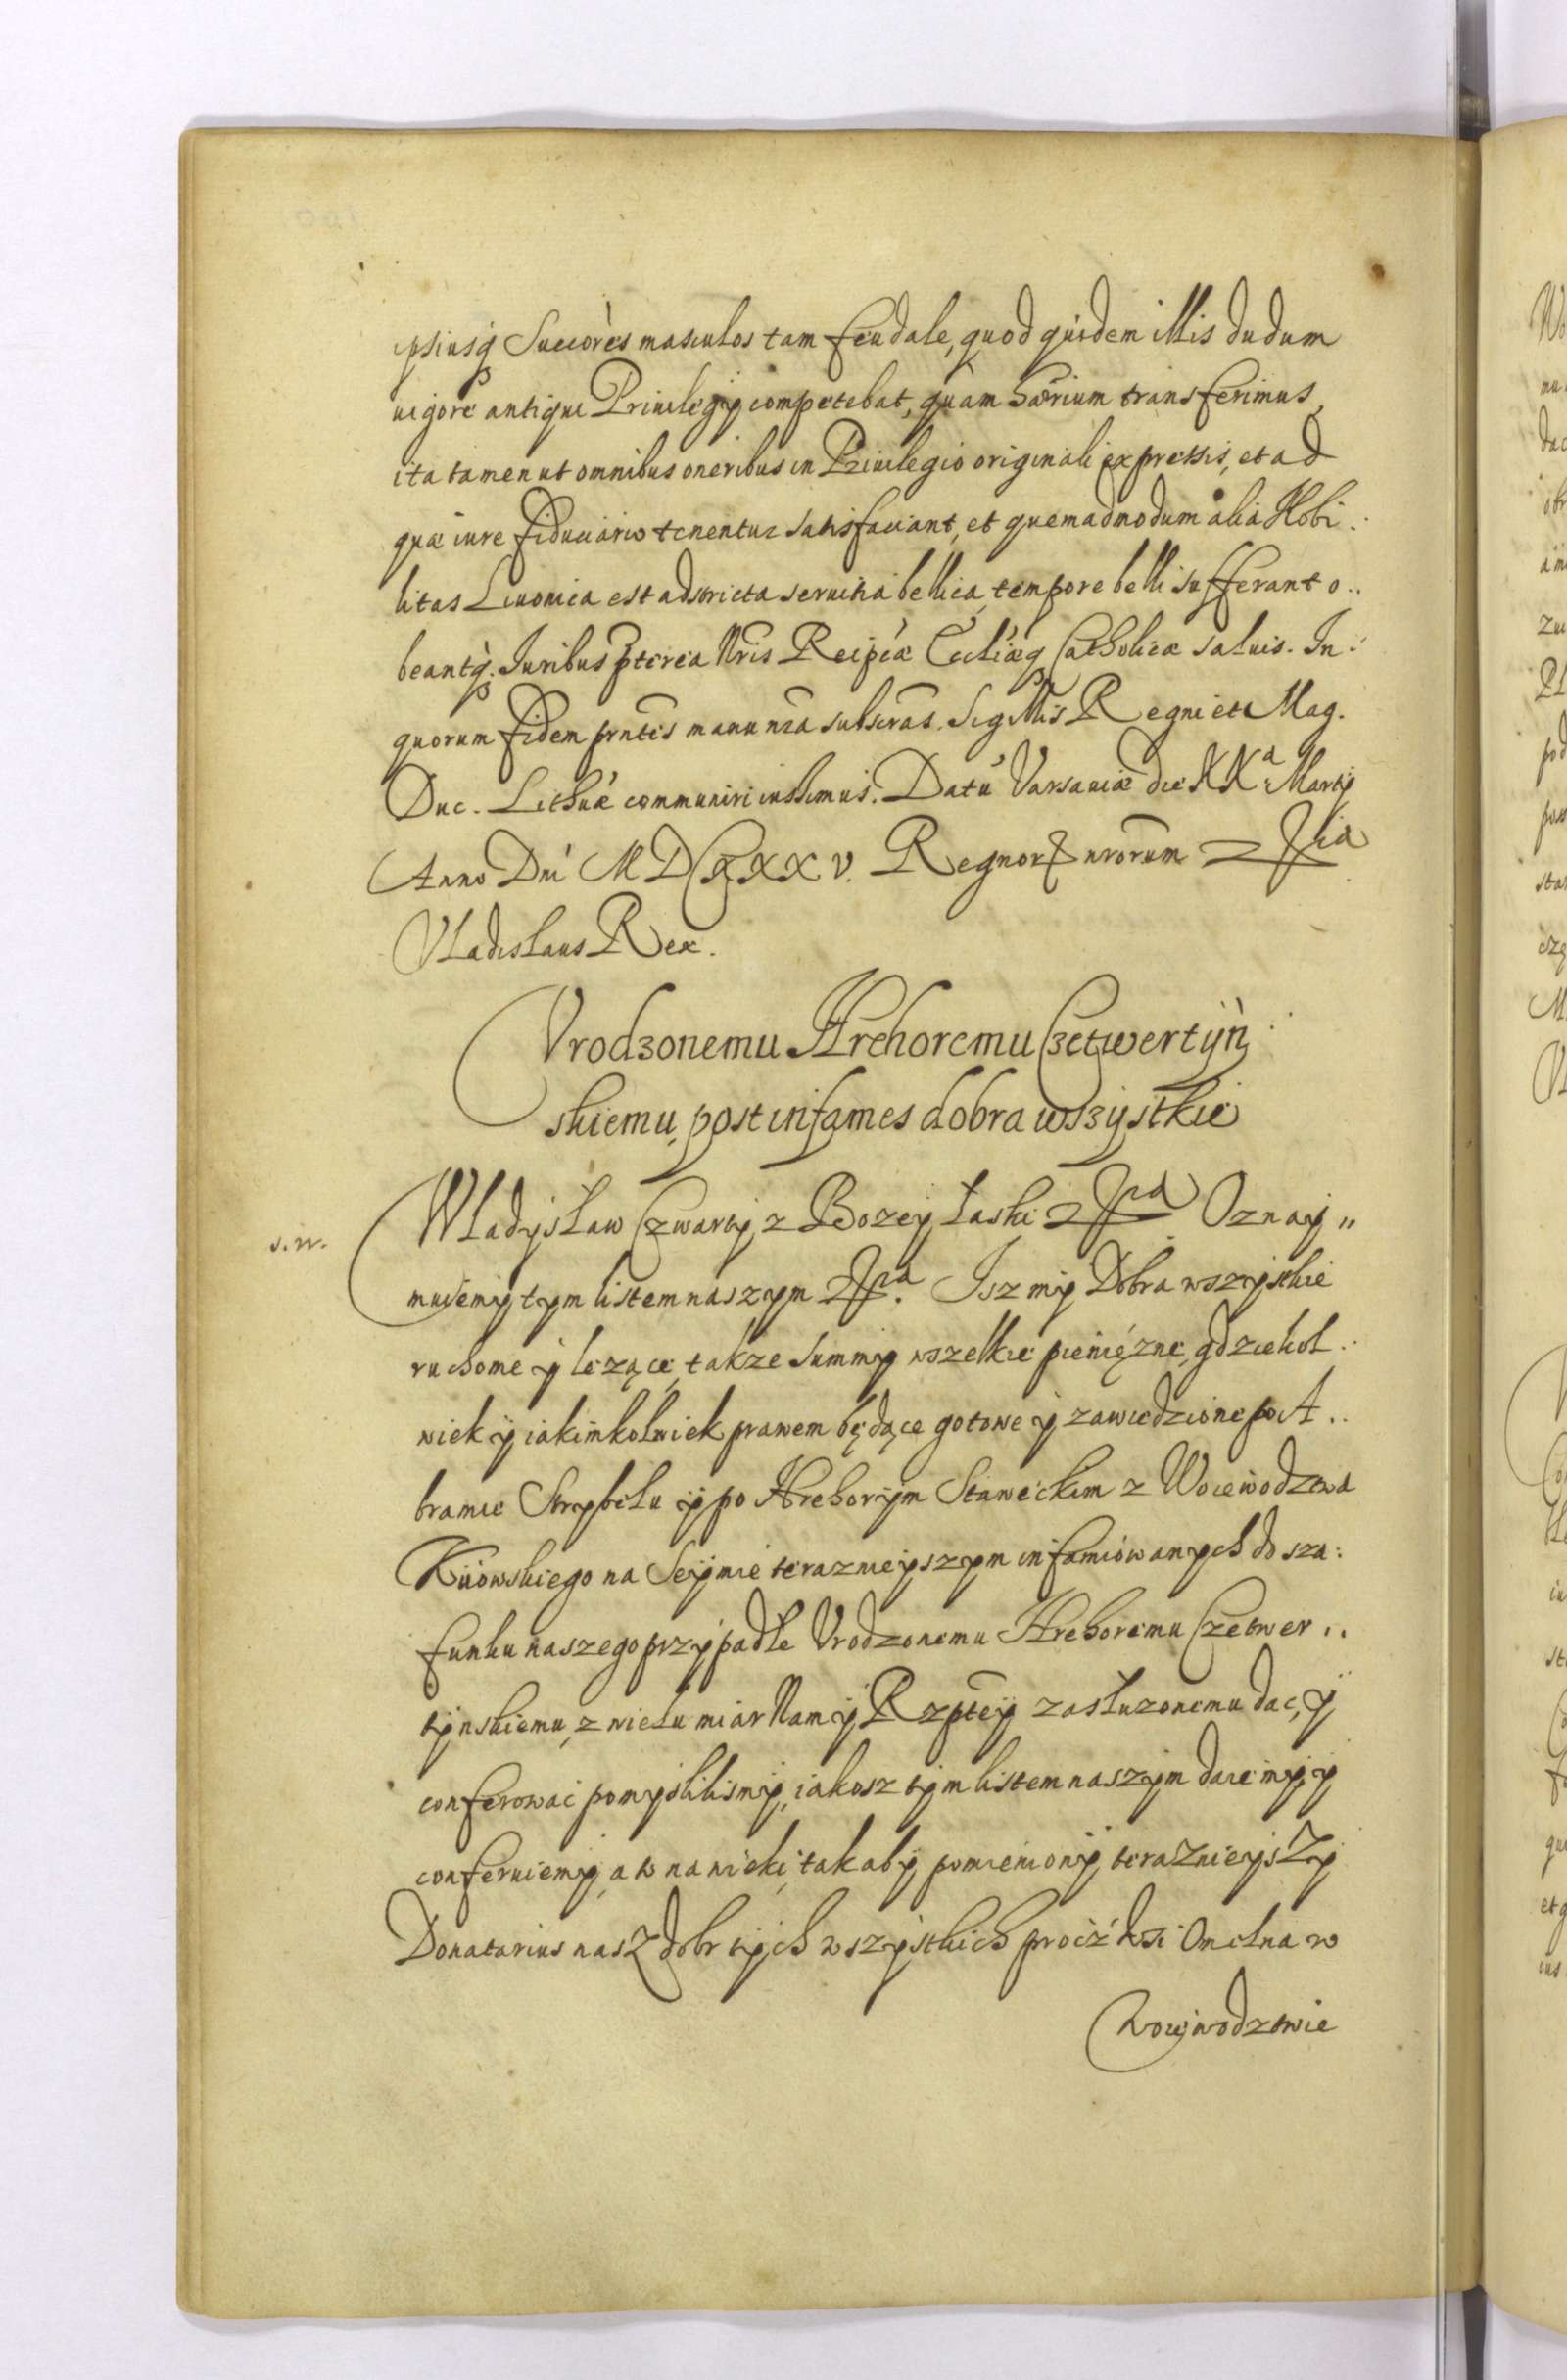 ipsiusq Succõres masculos tam feudale, quod quidem illis dudum
uigore antiqui Priuilegij competebat, quam hærium transferimus,
ita tamen ut omnibus oneribus in Priuilegio originali expressis, et ad
quæ iure fiduciario tenentur satisfaciant, et quemadmodum alia Nobi:
litas Liuonica est adstricta seruitia bellica, tempore belli sufferant o..
beantq. Juribus pterea Nris Reipcæ Eccliæq Catholicæ saluis. In:
quorum fidem pntes manu nra subscras. Sigillis Regni et Mag.
Duc. Lithuæ communiri iussimus. Datũ Varsauiæ die XXa Martij
Anno Dni MDCXXXV. Regnor nrorum
Vladislaus Rex.
Vrodzonemu Hrehoremu Czetwertyń
skiemu, post infames dobra wszystkie
s.w.
Władysław Czwarty z Bozey łaski Oznay„
muiemy tym listem naszym Isz my Dobra wszystkie
ruchome y lezące, takze summy wszelkie pieniężne, gdziekol:
wiek y iakimkolwiek prawem będące gotowe y zawiedzione po A..
bramie Strybelu y po Hrehorym Staweckim z Woiewodztwa
Kiiowskiego na Seymie terazniejszym infamiowanych do sza:
funku naszego przypadłe Vrodzonemu Hrehoremu Czetwer..
tynskiemu, z wielu miar Nam y Rzptey zasłuzonemu dac, y
conferowac pomyslilismy, iakosz tym listem naszym daiemy, y
conferuiemy, a to na wieki, tak aby pomieniony terazniejszy
Donatarius nasz dobr tych wszystkich procz wsi w
Woiewodztwie